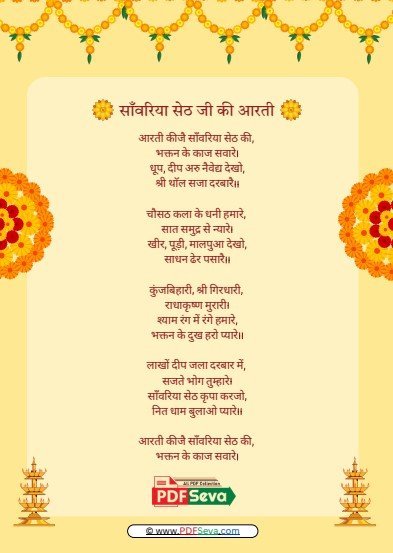 साँवरिया सेठ जी की आरती
आरती कीजै साँवरिया सेठ की,
भक्तन के काज सवारे।
धूप, दीप अरु नैवेद्य देखो,
श्री थॉल सजा दरबारै॥
चौसठ कला के धनी हमारे,
सात समुद्र से न्यारे।
खीर, पूड़ी, मालपुआ देखो,
साधन ढेर पसारै॥
कुंजबिहारी, श्री गिरधारी,
राधाकृष्ण मुरारी।
श्याम रंग में रंगे हमारे,
भक्तन के दुख हरो प्यारे॥
लाखों दीप जला दरबार में,
सजते भोग तुम्हारे।
साँवरिया सेठ कृपा करजो,
नित धाम बुलाओ प्यारे॥
आरती कीजै साँवरिया सेठ की,
भक्तन के काज सवारे।
All PDF Collection
PDF Seva
© www.PDFSeva.com